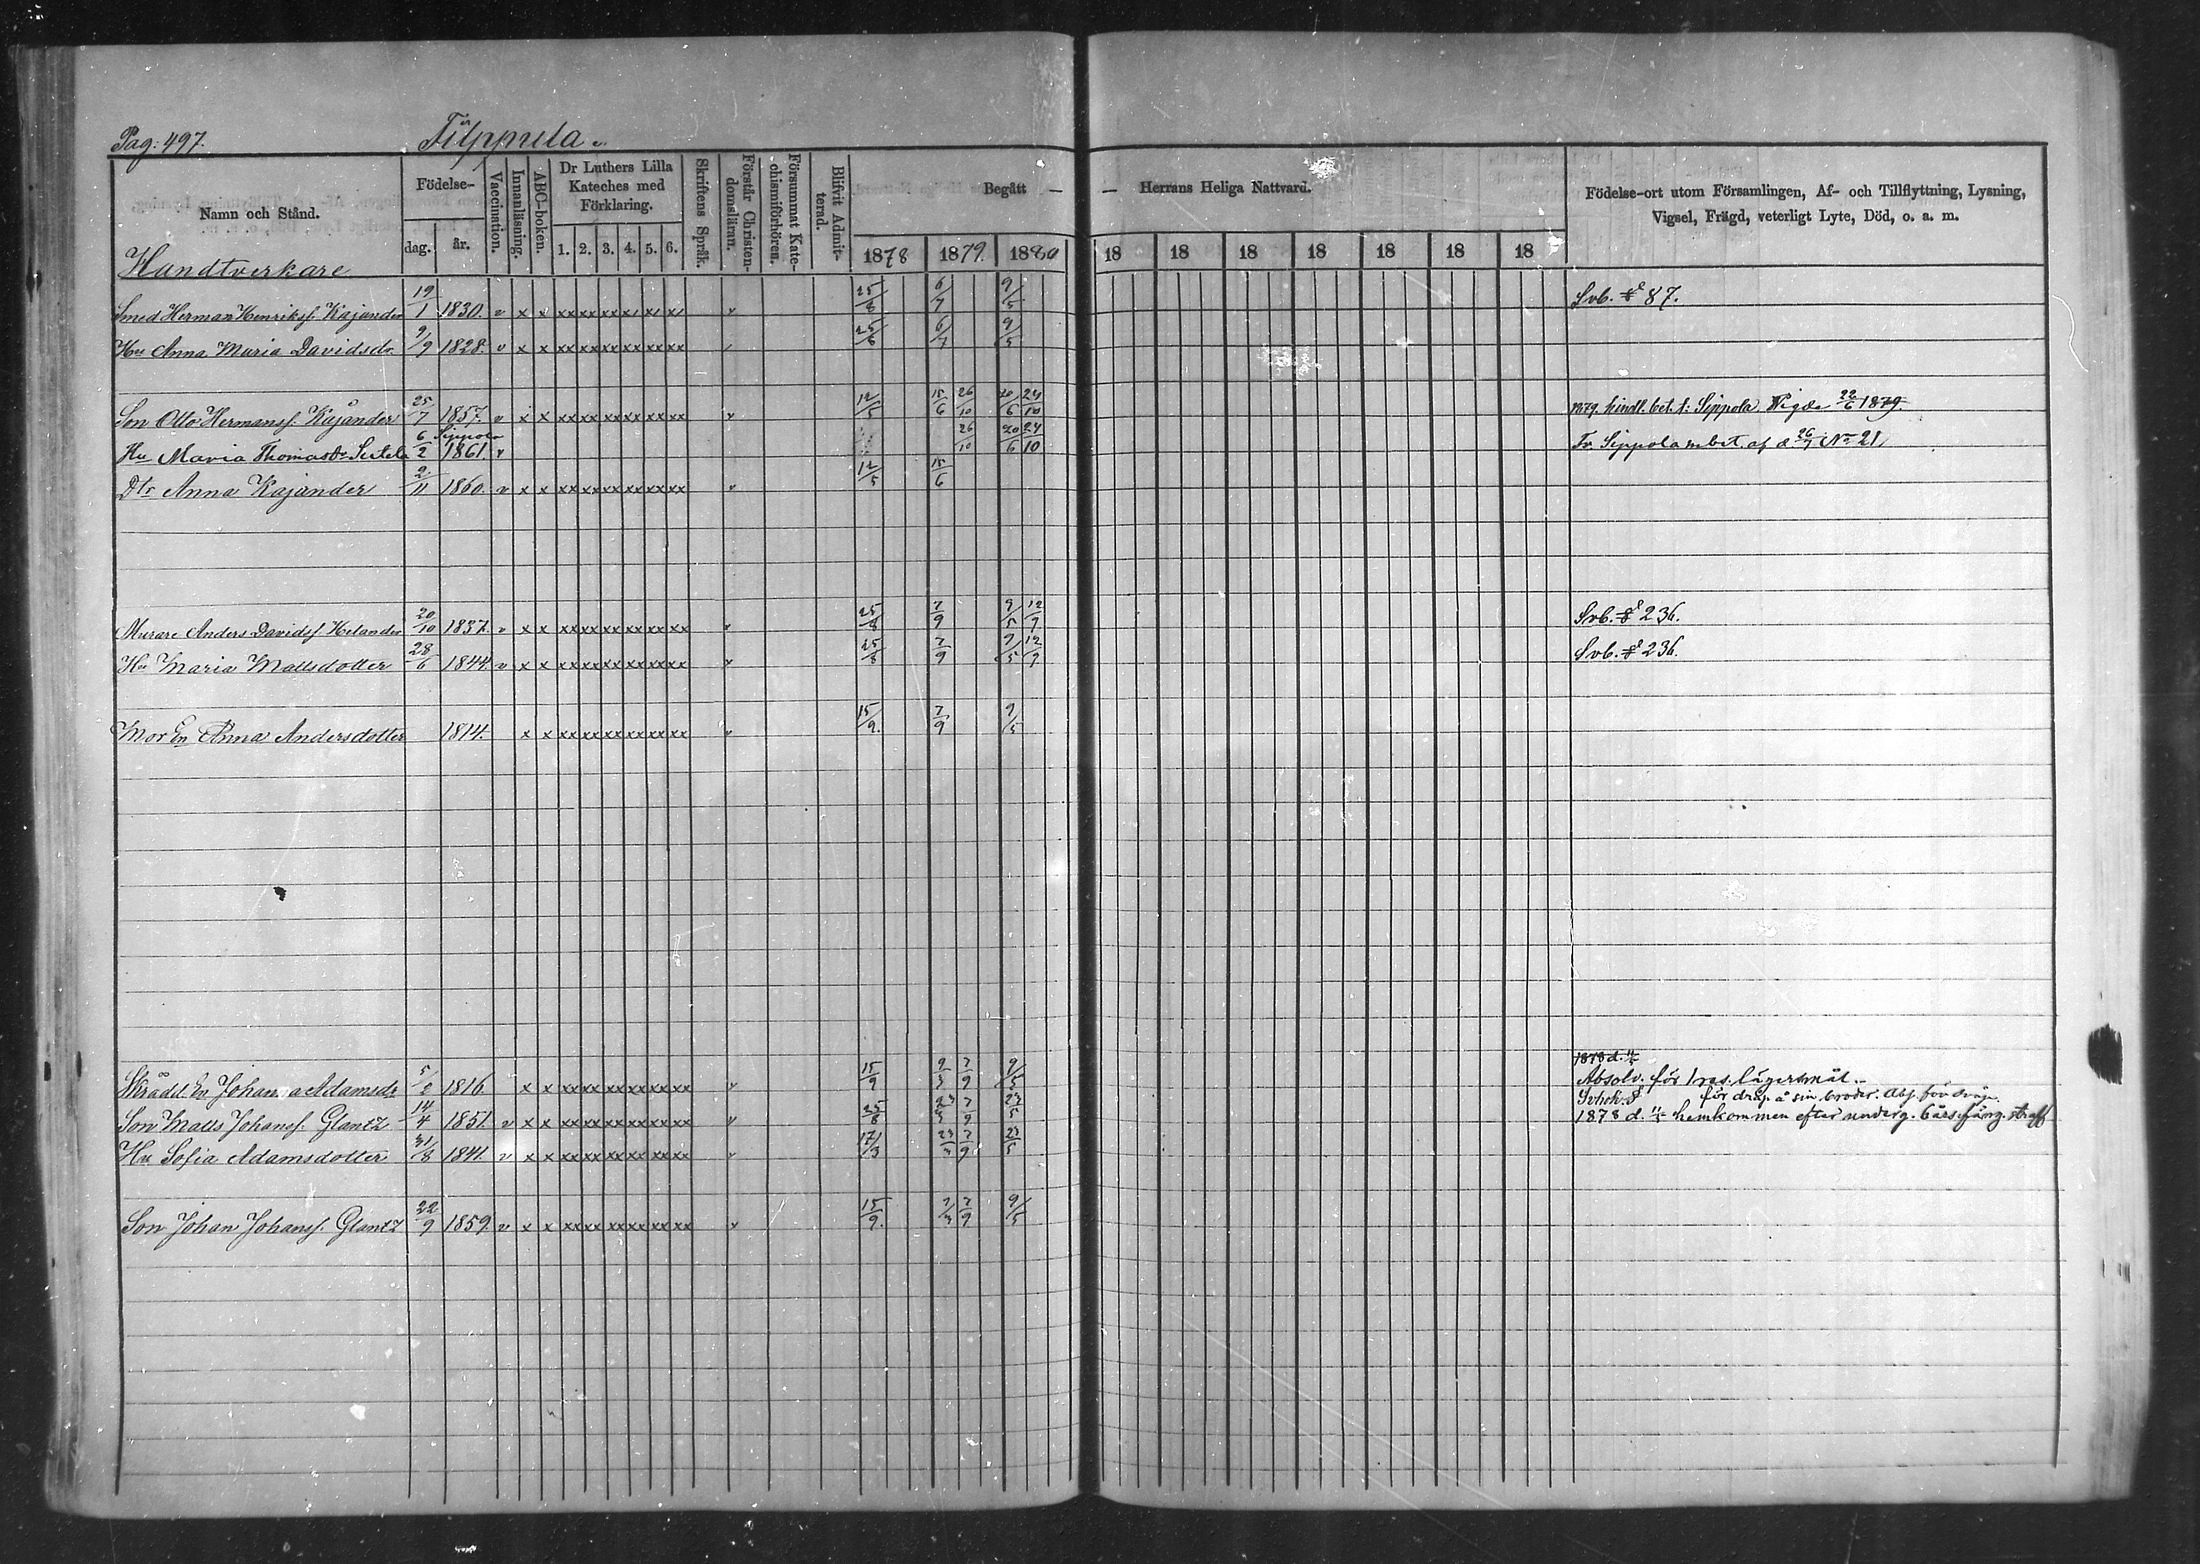 Pag: 497. Filppula.
Namn och Stånd. Födelse- dag. år. Vaccination. Innanläsning. ABC-boken. Dr Luthers Lilla Kateches med Förklaring. 1. 2. 3. 4. 5. 6. Skriftens Språk. Förstår Christendomsläran. Försummat Katechismiförhören. Blifvit Admitterad. Begått — — Herrans Heliga Nattvard. 1878 1879. 1880 18 18 18 18 18 18 18 Födelse-ort utom Församlingen, Af- och Tillflyttning, Lysning, Vigsel, Frägd, veterligt Lyte, Död, o. a. m.
Handtverkare
Smed Herman Henrikss. Kajander 19/1 1830. v x x xx xx xx xx xx xx v 25/8 6/7 9/5 Svb. 87.
Hu Anna Maria Davidsdr. 9/9 1828. v x x xx xx xx xx xx xx 25/8 6/7 9/5
Son Otto Hermanss. Kajander 25/7 1857. v x x xx xx xx xx xx xx v 12/5 15/6 26/10 20/6 24/10 1879. hindl. bet. t: Sippola. Vigde 22/6 1879.
Hu Maria Thomasdr 6/2 Sippola 1861 v 26/10 20/6 24/10 Fr. Sippola m bet. af d. 26/7 No 21
Dtr Anna Kajander 2/11 1860. v x x xx xx xx xx xx xx v 12/5 15/6
Murare Anders Davidss. Helander 20/10 1837. v x x xx xx xx xx xx xx v 25/8 7/9 9/5 12/9 Svb. 236.
Hu Maria Mattsdotter 28/6 1844. v x x xx xx xx xx xx xx v 25/8 7/9 9/5 12/9 Svb. 236.
Mor En Anna Andersdotter 1814. x x xx xx xx xx xx xx v 15/9. 7/9 9/5
1878 d.
Skrädd. En Johan. Adamsdr 5/2 1816. x x xx xx xx xx xx xx v 15/9 9/3 7/9 9/5 Absolv. för 1 res. lägersmål.
för dråp å sin broder. Abs. för dråp.
Son Matts Johanss. Glantz 14/4 1851. v x x xx xx xx xx xx xx v 25/8 23/3 7/9 23/5 1878 d. hemkommen efter underg. 6 års fäng. straff
Hu Sofia Adamsdotter 31/8 1841. v x x xx xx xx xx xx xx v 17/3 23/3 7/9 23/5
Son Johan Johanss. Glantz 22/9 1859. v x x xx xx xx xx xx xx v 15/9. 7/3 7/9 9/5